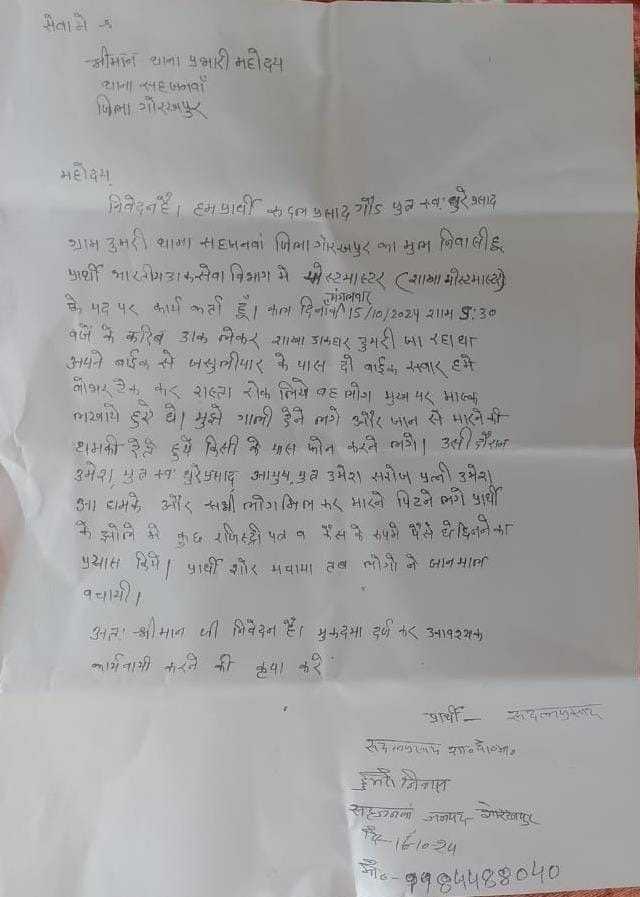 सेवा मे -
श्रीमान थाना प्रभारी महोदय
थाना सहजनवाँ
जिला गोरखपुर
महोदय,
निवेदन है। हम प्रार्थी सदल प्रसाद गौड पुत्र स्व: धुरे प्रसाद
ग्राम डुमरी थाना सहजनवां जिला गोरखपुर का मुल निवासी हू
प्रार्थी भारतीय डाक सेवा विभाग मे पोस्टमास्टर (शाखा पोस्टमास्टर)
के पद पर कार्य कर्ता हूँ। कल दिनाँक मंगलवार 15/10/2024 शाम 5:30
वजे के करिब डाक लेकर शाखा डाकघर डुमरी जा रहा था
अपने बाईक से जसुलीपार के पास दो बाईक सवार हमे
वोभर टेक कर रास्ता रोक लिये वह लोग मुख पर मास्क
लखाये हुये थे। मुझे गाली देने लगे और जान से मारने की
धमकी देते हुये किसी के पास फोन करने लगे। उसी दौरान
उमेश, पुत्र स्व: धुरेप्रसाद, आयुष, पुत्र उमेश सरोज पत्नी उमेश,
आ धमके और सभी लोग मिल कर मारने पिटने लगे प्रार्थी
के झोले मे कुछ रजिस्ट्री पत्र व कैस के रुपये पैसे थे छिनने का
प्रयास किये। प्रार्थी शोर मचाया तब लोगो ने जानमाल
वचायी।
अत: श्रीमान जी निवेदन है। मुकदमा दर्ज कर आवश्यक
कार्यवायी करने की कृपा करे
प्रार्थी - सदलप्रसाद
सदलप्रसाद शा०पो०मा०
डुमरी निवास
सहजनवां जनपद गोरखपुर
दि०-16-10-24
मो०-9984488040